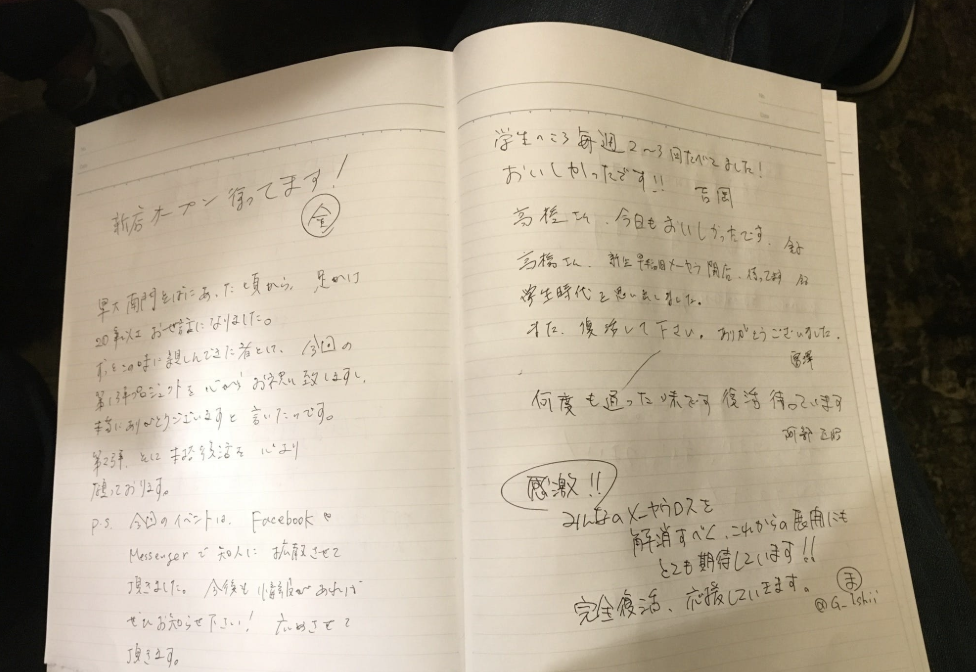 新店オープン待ってます!
金
早大南門そばにあった頃から、足かけ
20年以上お世話になりました。
ずっとこの味に親しんできた者として、今回の
第1弾プロジェクトを心からお祝い致しますし、
本当にありがとうございますと言いたいのです。
第2弾、そして本格復活を心より
願っております。
P.S. 今回のイベントは、Facebookや
Messengerで知人に拡散させて
頂きました。今後も情報があれば
ぜひお知らせ下さい! 広めさせて
頂きます。
学生のころ毎週2〜3回たべてました!
おいしかったです!! 吉岡
高橋さん、今日もおいしかったです。
高橋さん、新生早稲田メーヤウ開店、待ってます
学生時代を思い出しました。
また、復活して下さい。ありがとうございました。
富澤
何度も通った味です 復活待っています
阿部
感激!!
みんなのメーヤウロスを
解消すべく、これからの展開にも
とても期待しています!!
完全復活、応援していきます。
ま
@G_Ishii